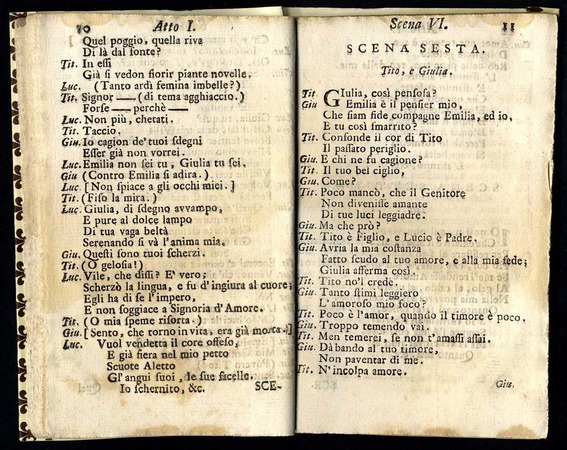 10 Atto I.
Quel poggio, quella riva
Di là dal fonte?
Tit. In essi
Già si vedon fiorir piante novelle.
Luc. (Tanto ardì femina imbelle?)
Tit. Signor —— (di tema agghiaccio.)
Forse —— perchè ——
Luc. Non più, chetati.
Tit. Taccio.
Giu. Io cagion de' tuoi sdegni
Esser già non vorrei.
Luc. Emilia non sei tu, Giulia tu sei.
Giu (Contro Emilia si adira.)
Luc [Non spiace a gli occhi miei.]
Tit. (Fiso la mira.)
Luc. Giulia, di sdegno avvampo,
E pure al dolce lampo
Di tua vaga beltà
Serenando si và l'anima mia.
Giu. Questi sono tuoi scherzi.
Tit. (O gelosia!)
Luc. Vile, che dissi? E' vero;
Scherzò la lingua, e fu d'ingiura al cuore;
Egli ha di se l'impero,
E non soggiace a Signoria d'Amore.
Tit. (O mia speme risorta.)
Giu. [Sento, che torno in vita, era già morta.]
Luc. Vuol vendetta il core offeso,
E già fiera nel mio petto
Scuote Aletto
Gl'angui suoi, le sue facelle.
Io schernito, &c. SCE-
Scena VI. 11
SCENA SESTA.
Tito, e Giulia.
Tit. GIulia, così pensosa?
Giu Emilia è il pensier mio,
Che siam fide compagne Emilia, ed io,
E tu così smarrito?
Tit. Confonde il cor di Tito
Il passato periglio.
Giu. E chi ne fu cagione?
Tit. Il tuo bel ciglio,
Giu. Come?
Tit. Poco mancò, che il Genitore
Non divenisse amante
Di tue luci leggiadre.
Giu. Ma che prò?
Tit. Tito è Figlio, e Lucio è Padre.
Giu. Avria la mia costanza
Fatto scudo al tuo amore, e alla mia fede;
Giulia afferma così.
Tit. Tito no'l crede.
Giu. Tanto stimi leggiero
L'amoroso mio foco?
Tit. Poco è l'amor, quando il timore è poco.
Giu. Troppo temendo vai.
Tit. Men temerei, se non t'amassi assai.
Giu. Dà bando al tuo timore,
Non paventar di me.
Tit. N'incolpa amore.
Giu.